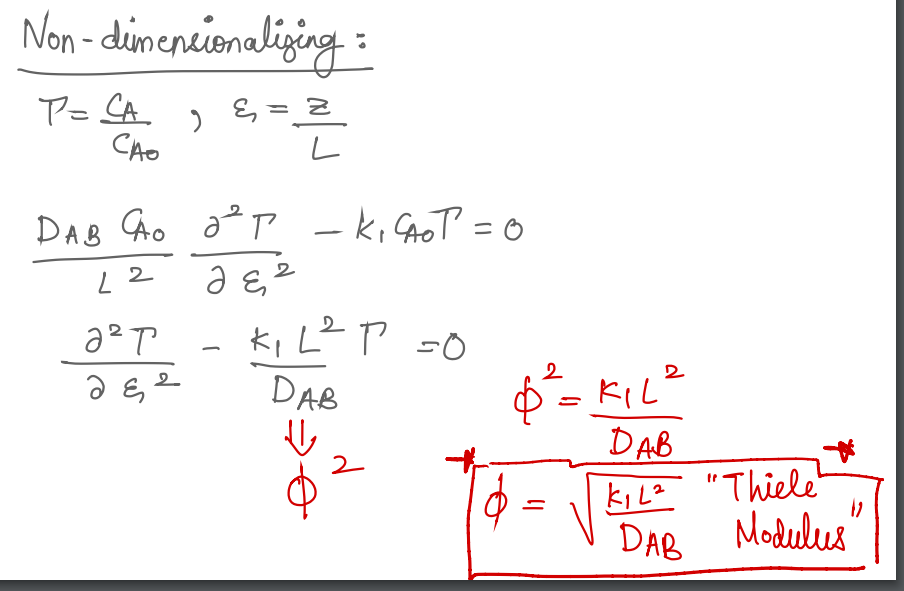 Non-dimensionalizing:
Γ = C_A / C_A0 , ξ = z / L
D_AB C_A0 / L² ∂²Γ / ∂ξ² − k₁ C_A0 Γ = 0
∂²Γ / ∂ξ² − k₁L² / D_AB Γ = 0
⇓
ϕ²
ϕ² = k₁L² / D_AB
ϕ = √(k₁L² / D_AB) "Thiele
Modulus"